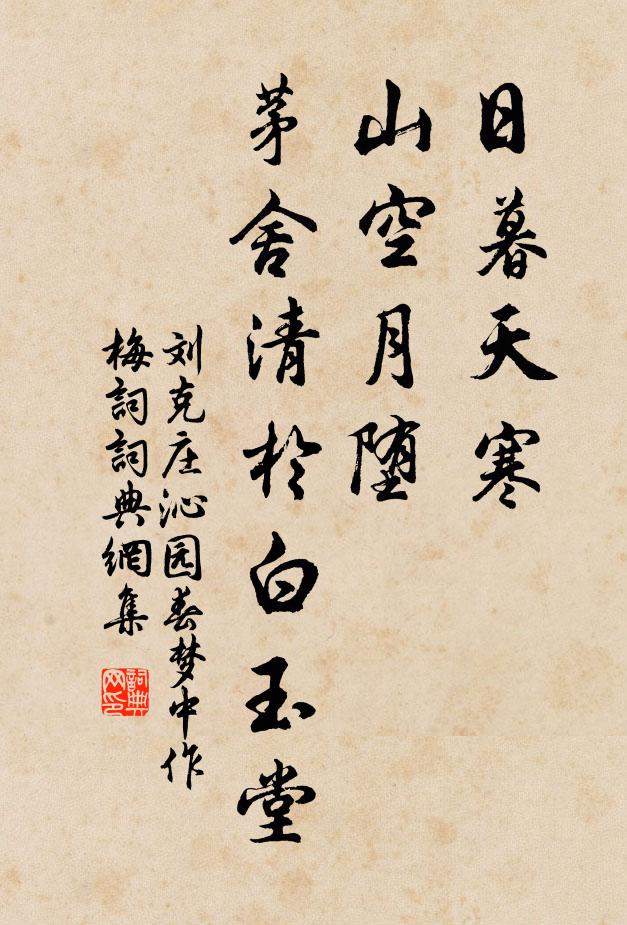 日暮天寒
山空月堕
茅舍清於白玉堂
刘克庄沁园春梦中作
梅詞詞典網集
詞典网印